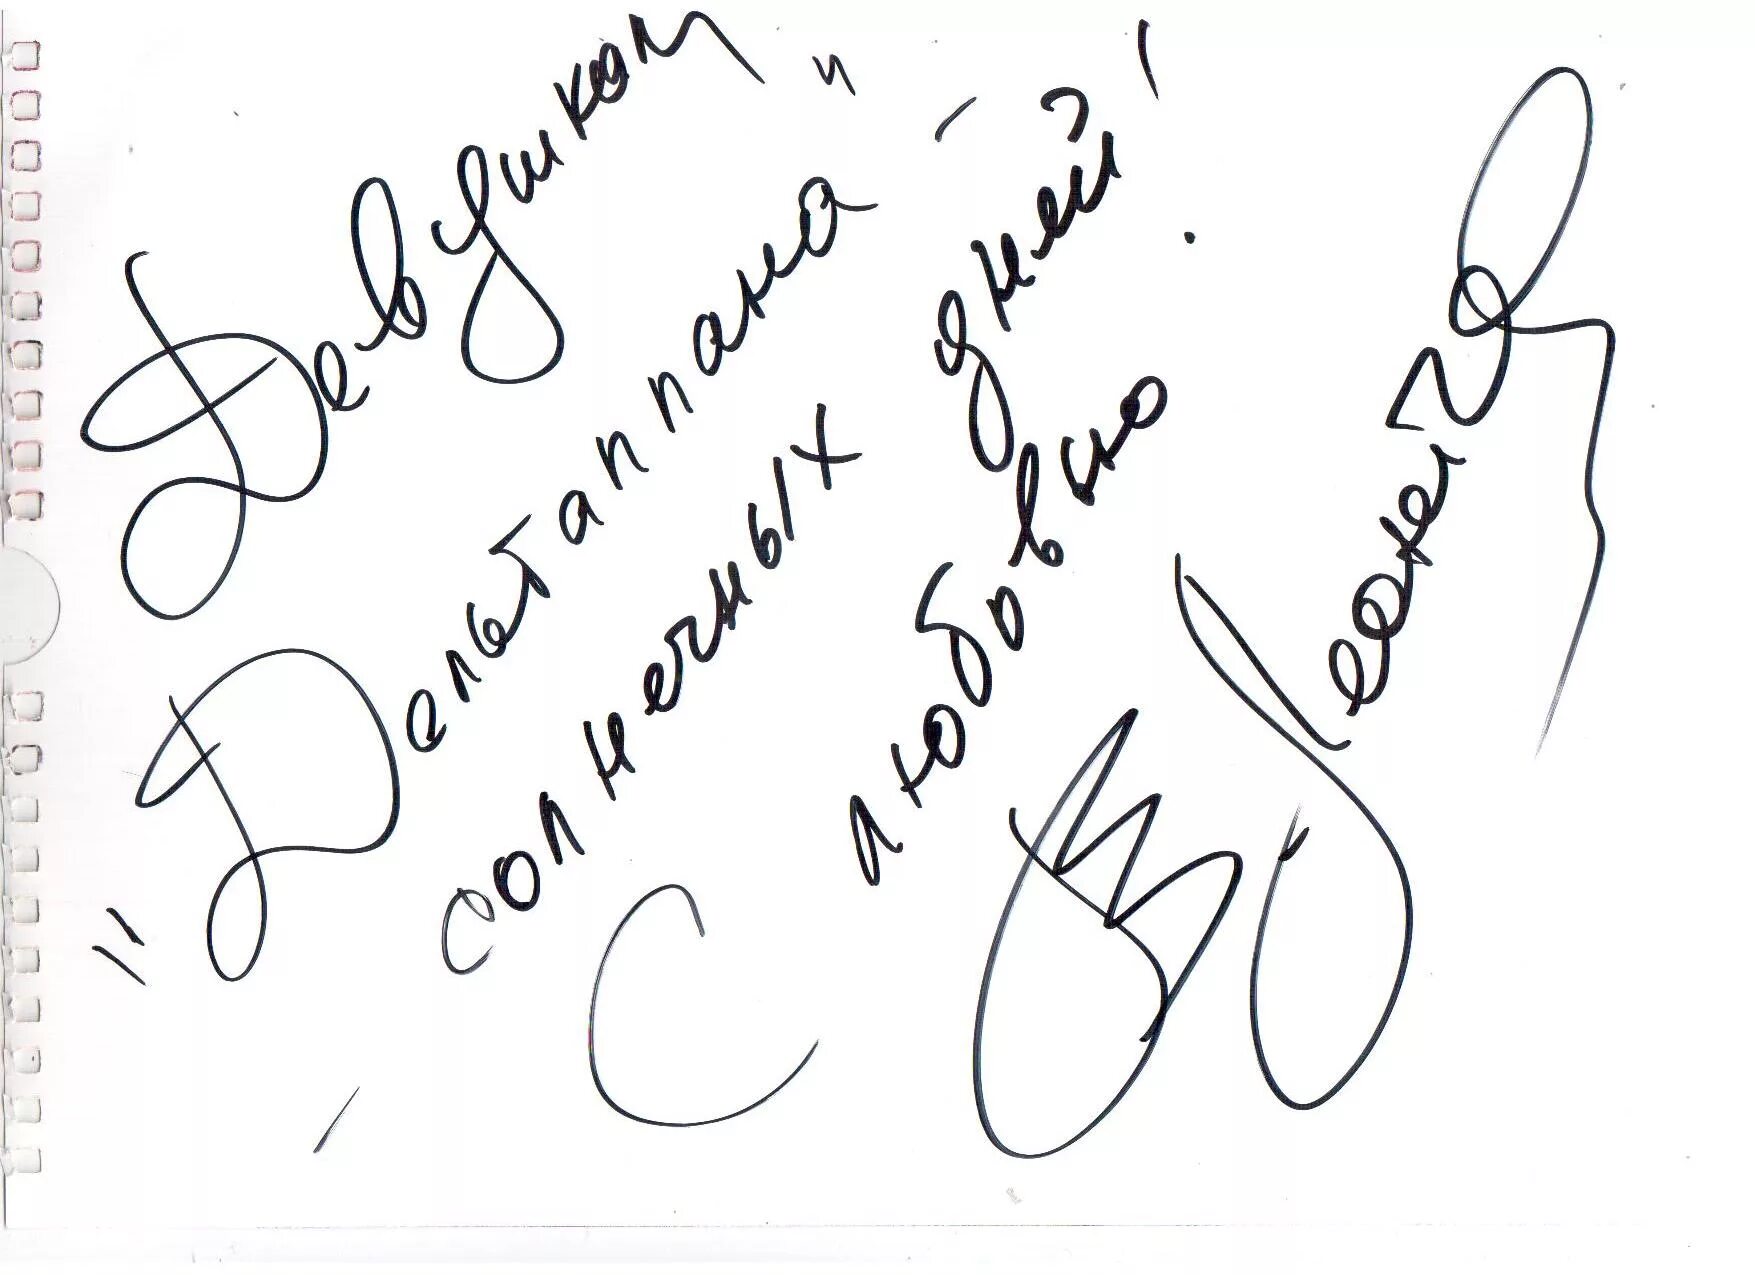 Девушкам
"Дельтаплана" -
- солнечных дней!
С любовью
В Леонтьев